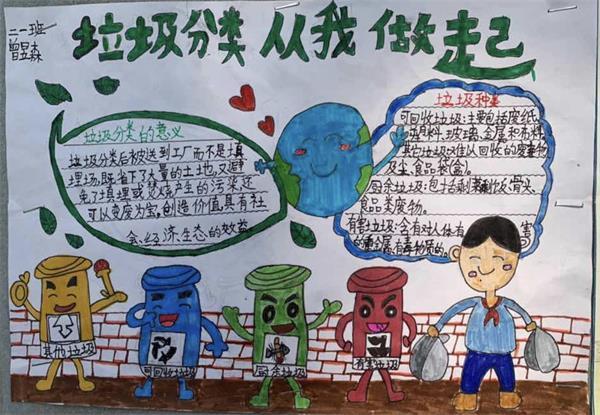 二一班
曾昱森
垃圾分类 从我做起
垃圾分类的意义
垃圾分类后被送到工厂而不是填
埋场,既省下了大量的土地,又避
免了填埋或焚烧产生的污染还
可以变废为宝,创造价值,具有社
会、经济、生态的效益
垃圾种类
可回收垃圾:主要包括废纸
塑料、玻璃、金属和布料
其它垃圾:难以回收的废弃物
及尘、食品袋(盒)。
厨余垃圾:包括剩菜剩饭及骨头
食品类废物。
有害垃圾:含有对人体有害
的重金属,有毒物质的。
其他垃圾
可回收垃圾
厨余垃圾
有害垃圾